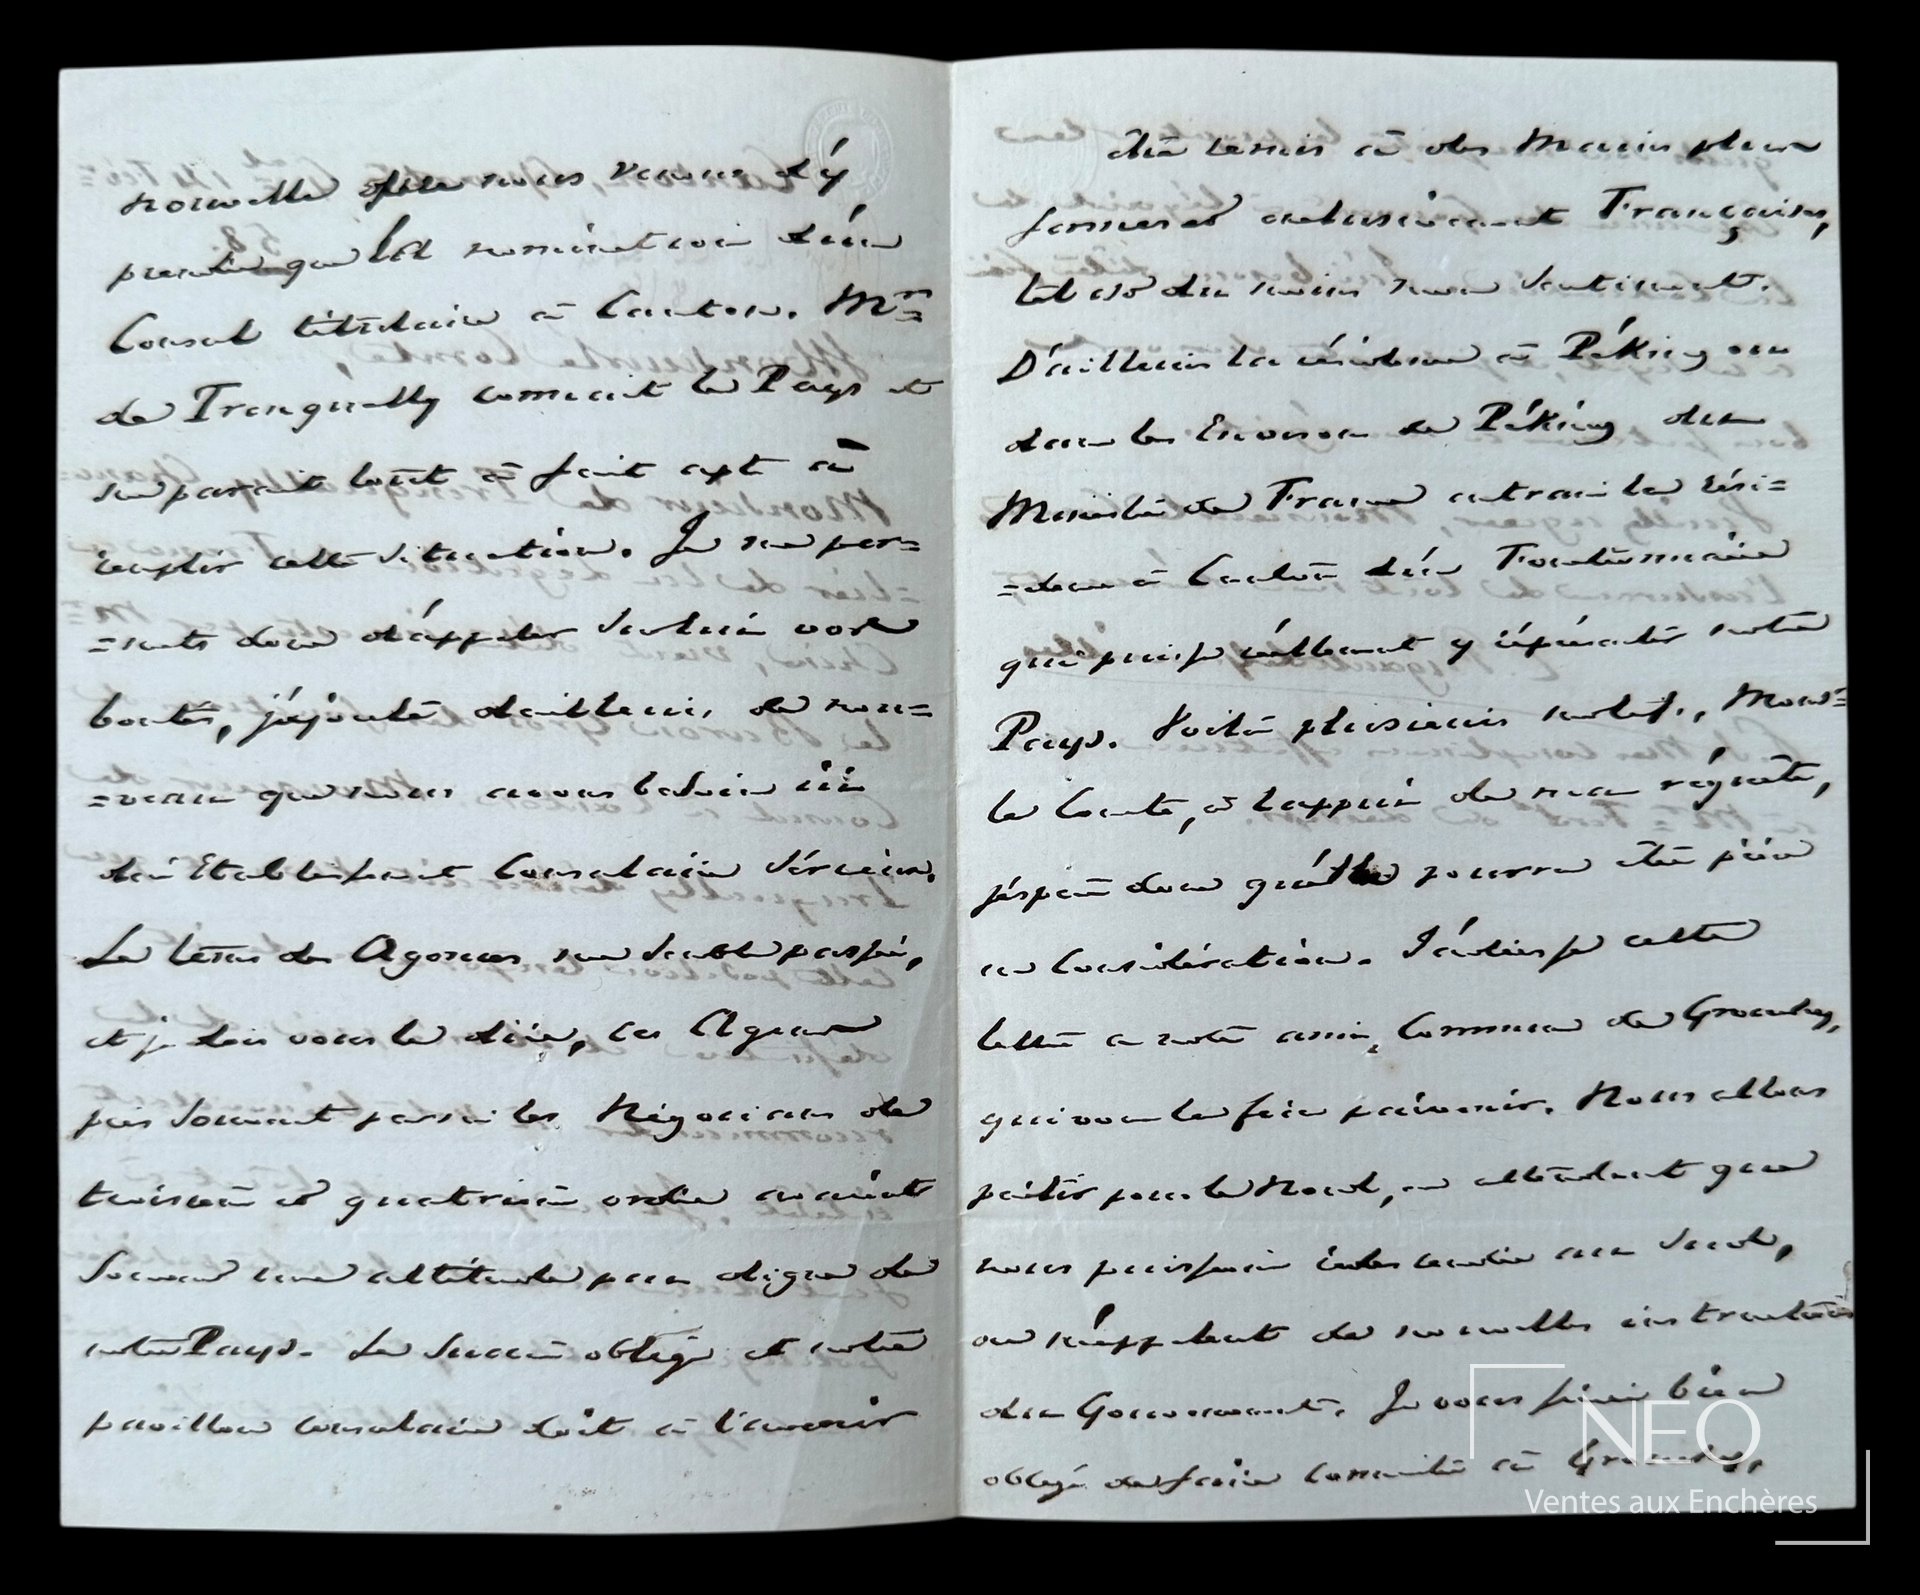 nouvelle que nous venons d'y
prendre que la nomination d'un
Consul titulaire à Canton. Mr=
de Trenqually connait le Pays et
me parait tout à fait apt à
remplir cette situation. Je me per=
=mets donc d'appeler sur lui vos
bontés, j'ajoute d'ailleurs, de nou=
=veau que nous avons besoin ici
d'un Etablissement Consulaire sérieux.
Le tems des Agences me semble passé,
et je dois vous le dire, ces Agens
pris souvent parmi les Négocians de
troisième et quatrième ordre avaient
souvent une attitude peu digne de
notre Pays. Le succès oblige et notre
pavillon consulaire doit à l'avenir
être remis à des Mains plus
fermes et exclusivement Françaises,
tel est du moins mon sentiment.
D'ailleurs la résidence à Péking ou
dans les Environs de Péking du
Ministre de France entraine la rési=
=dence à Canton d'un Fonctionnaire
qui puisse réellement y représenter notre
Pays. Voilà plusieurs motifs, Mons=
le Comte, à l'appui de ma réquête,
j'espère donc qu'elle pourra être prise
en Considération. J'adresse cette
lettre à notre ami, Commun de
qui vous la fera parvenir. Nous allons
partir pour le Nord, en attendant que
nous puissions redescendre au Sud,
où m'appellent de nouvelles instructions
du Gouvernement. Je vous serai bien
obligé de faire connaitre à
NEO
Ventes aux Enchères